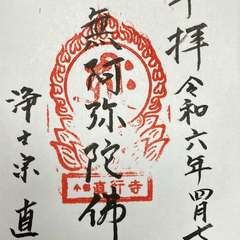 拝
令和六年四月七
無阿弥陀佛
直行寺
浄土宗 直